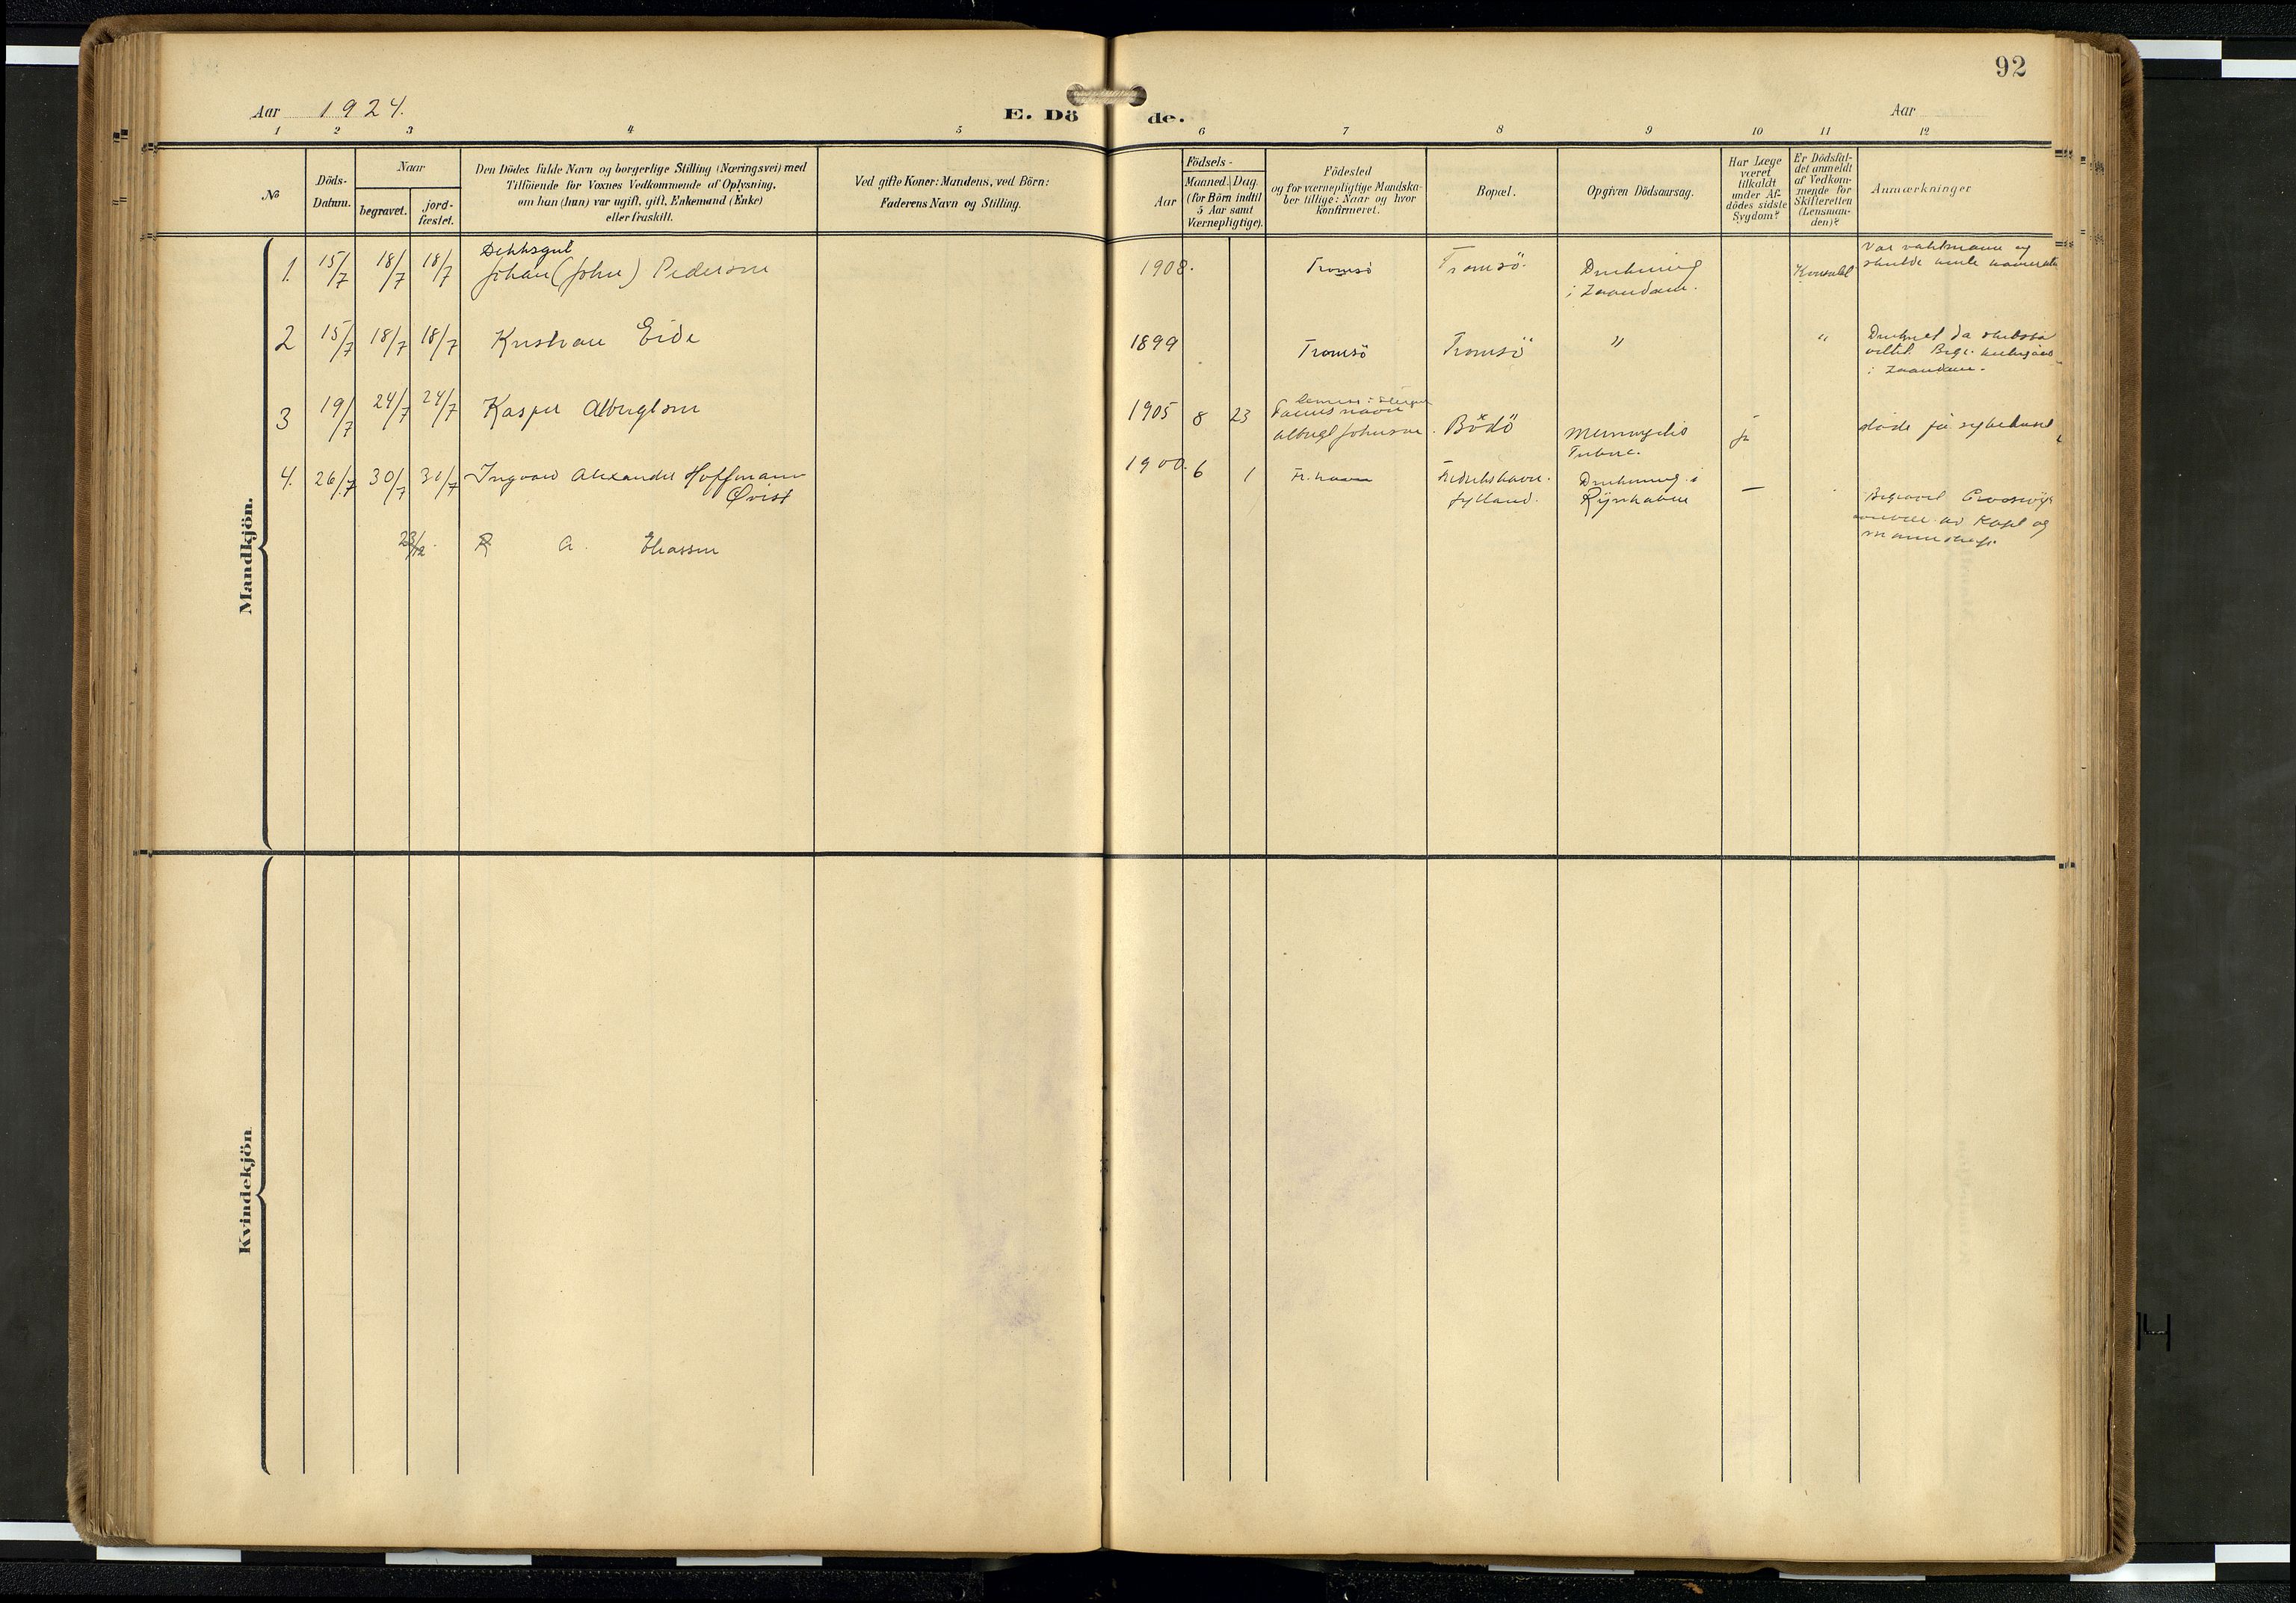 92
Aar 1924.
E. Dö de.
Aar
1 2 3 4 5 6 7 8 9 10 11 12
No
Döds-
Datum.
Naar
begravet.
jord-
fæstet.
Den Dödes fulde Navn og borgerlige Stilling (Næringsvei) med
Tilföiende for Voxnes Vedkommende af Oplysning,
om han (hun) var ugift, gift, Enkemand (Enke)
eller fraskilt.
Ved gifte Koner: Mandens, ved Börn:
Faderens Navn og Stilling.
Födsels-
Aar
Maaned. Dag.
(for Börn indtil
5 Aar samt
Værnepligtige).
Födested
og for værnepligtige Mandska-
ber tillige: Naar og hvor
konfirmeret.
Bopæl.
Opgiven Dödsaarsag.
Har Læge
været
tilkaldt
under Af-
dödes sidste
Sygdom?
Er Dödsfal-
det anmeldt
af Vedkom-
mende for
Skifteretten
(Lensman-
den)?
Anmærkninger
Mandkjön.
Dekksgut
1. 15/7 18/7 18/7 Johan (John) Pedersen 1908. Tromsö Tromsö Drukning
i Zaandam.
Konsulat
Var vaktmann og
skulde
2 15/7 18/7 18/7 Kristian Eide 1899 Tromsö Tromsö " "
Druknet da
i Zaandam.
3 19/7 24/7 24/7 Kasper Albergtsen 1905 8 23
Bödö
ja
døde på sykehuset
4. 26/7 30/7 30/7 Ingvard Alexander Hoffmann
Qvist
1900. 6 1 Fr. havn Fredrikshavn.
Jylland.
Drukning i
Rijnhaven
—
Begravet Crooswijk
av Kapt og
mannskap.
23/12 R A. Eliassen
Kvindekjön